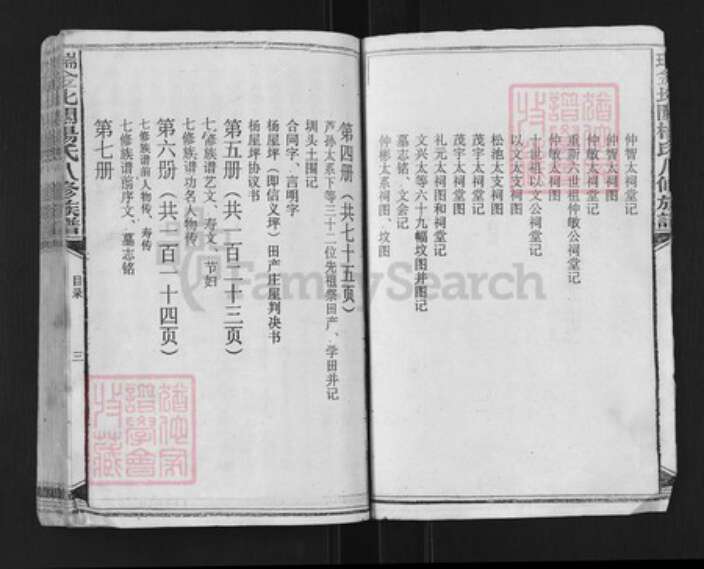 仲智太祠堂记
仲智太祠图
仲敏太祠堂记
重新六世祖仲敏公祠堂记
仲敏太祠图
十世祖以文公祠堂记
以文太支祠图
松池太支祠图
茂宇太祠堂记
茂宇太祠堂图
礼元太祠图和祠堂记
文兴太等六十九幅坟图并图记
墓志铭、文会记
仲彬太系祠图、坟图
第四册(共七十五页)
芦孙太系下等三十二位先祖祭田产、学田并记
圳头土围记
合同字、言明字
杨屋坪(即信义坪)田产庄屋判决书
杨屋坪协议书
第五册(共二百二十三页)
七修族谱艺文、寿文、节妇
七修族谱功名人物传
第六册(共二百一十四页)
七修族谱前人物传、寿传
七修族谱前序文、墓志铭
第七册
瑞金北关杨氏八修族譜
目录
三
FamilySearch